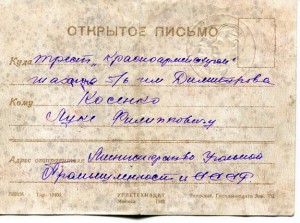 ОТКРЫТОЕ ПИСЬМО
Куда трест "Красноармейскуголь"
шахта 5/6 им Димитрова
Кому Косенко
Луке Филипповичу
Адрес отправителя Министерство Угольной
Промышленности СССР
Москва